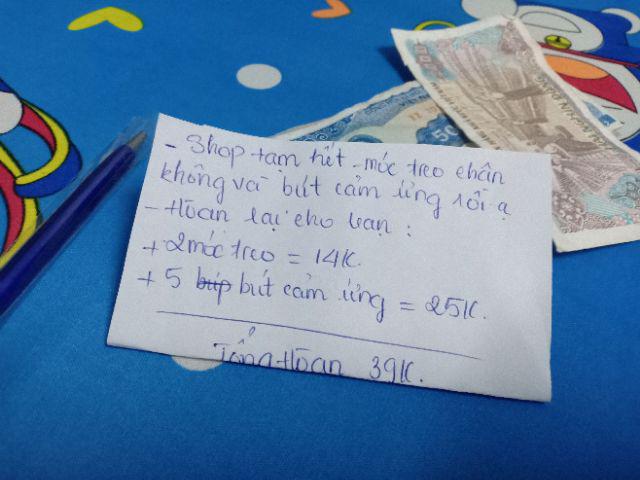 - Shop tạm hết móc treo chân
không và bút cảm ứng rồi ạ
- Hoàn lại cho bạn :
+ 2 móc treo = 14K.
+ 5 búp bút cảm ứng = 25K.
Tổng Hoàn 39K.